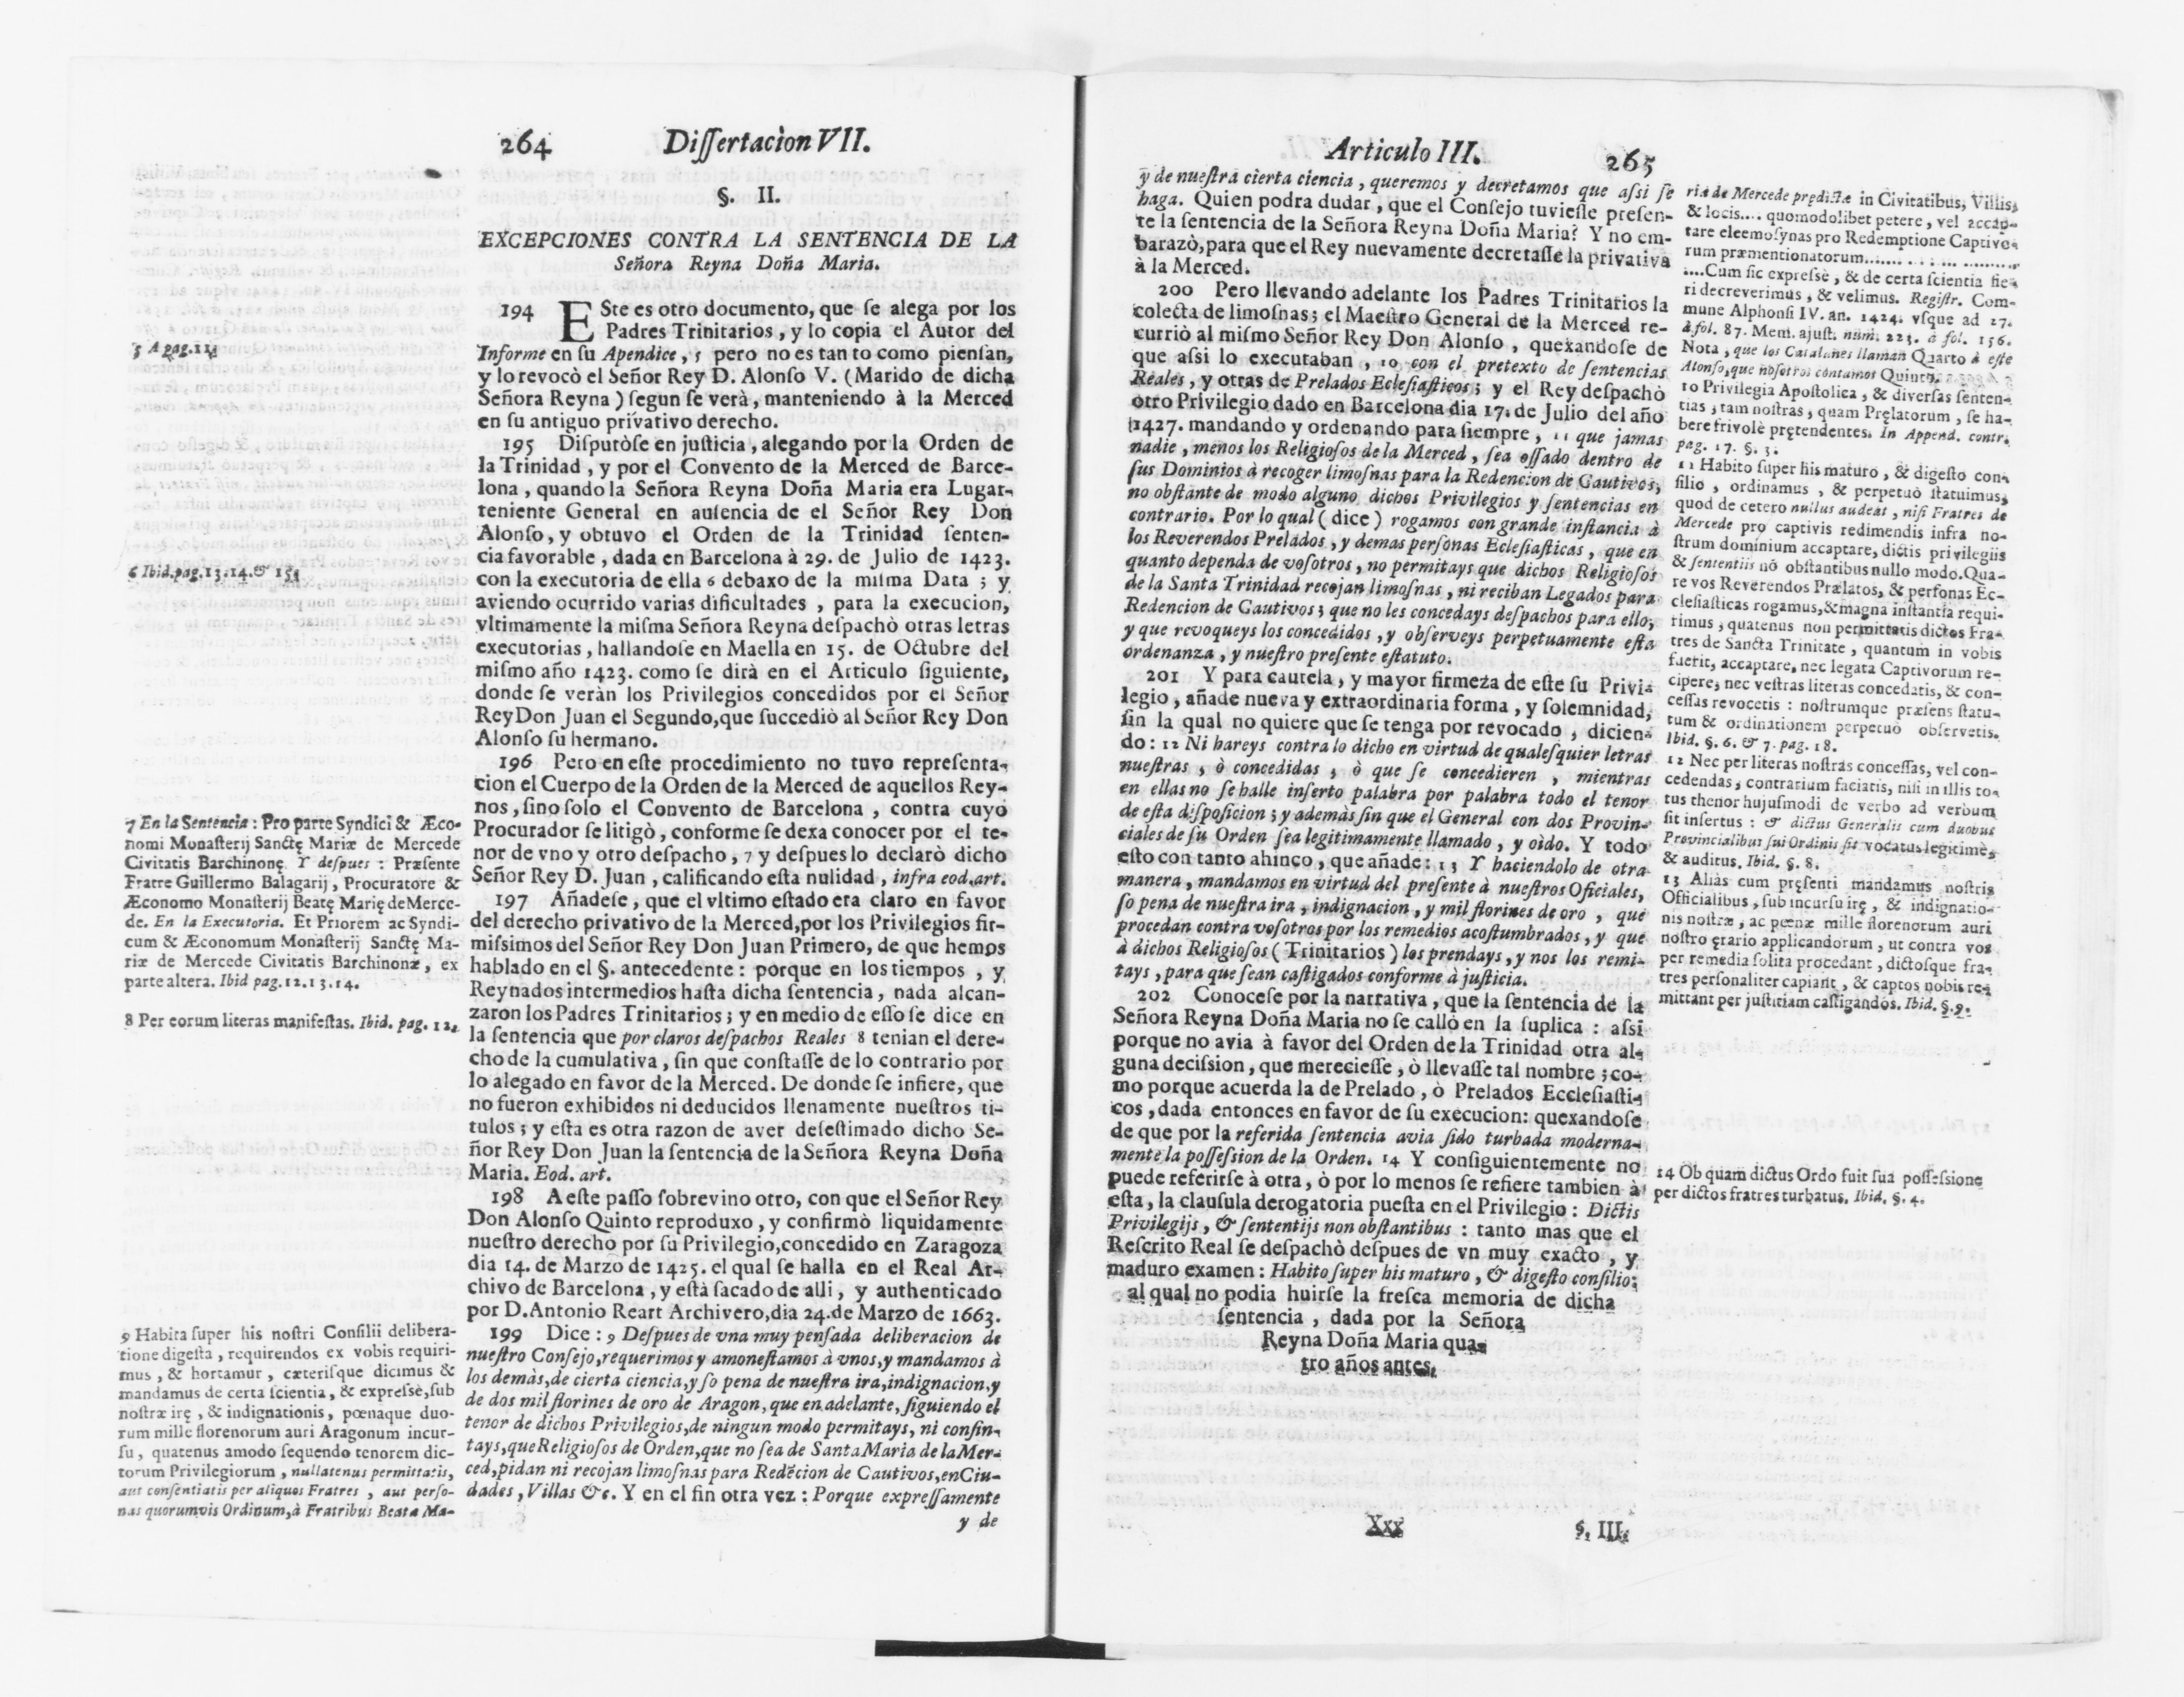 264 Dissertaciòn VII.
§. II.
EXCEPCIONES CONTRA LA SENTENCIA DE LA
Señora Reyna Doña Maria.
194 ESte es otro documento, que se alega por los
Padres Trinitarios, y lo copia el Autor del
Informe en su Apendice, 5 pero no es tanto como piensan,
y lo revocò el Señor Rey D. Alonso V. (Marido de dicha
Señora Reyna) segun se verà, manteniendo à la Merced
en su antiguo privativo derecho.
195 Disputòse en justicia, alegando por la Orden de
la Trinidad, y por el Convento de la Merced de Barce-
lona, quando la Señora Reyna Doña Maria era Lugar-
teniente General en ausencia de el Señor Rey Don
Alonso, y obtuvo el Orden de la Trinidad senten-
cia favorable, dada en Barcelona à 29. de Julio de 1423.
con la executoria de ella 6 debaxo de la misma Data; y
aviendo ocurrido varias dificultades, para la execucion,
vltimamente la misma Señora Reyna despachò otras letras
executorias, hallandose en Maella en 15. de Octubre del
mismo año 1423. como se dirà en el Articulo siguiente,
donde se veràn los Privilegios concedidos por el Señor
Rey Don Juan el Segundo, que succediò al Señor Rey Don
Alonso su hermano.
196 Pero en este procedimiento no tuvo representa-
cion el Cuerpo de la Orden de la Merced de aquellos Rey-
nos, sino solo el Convento de Barcelona, contra cuyo
Procurador se litigò, conforme se dexa conocer por el te-
nor de vno y otro despacho, 7 y despues lo declarò dicho
Señor Rey D. Juan, calificando esta nulidad, infra eod. art.
197 Añadese, que el vltimo estado era claro en favor
del derecho privativo de la Merced, por los Privilegios fir-
missimos del Señor Rey Don Juan Primero, de que hemos
hablado en el §. antecedente: porque en los tiempos, y
Reynados intermedios hasta dicha sentencia, nada alcan-
zaron los Padres Trinitarios; y en medio de esso se dice en
la sentencia que por claros despachos Reales 8 tenian el dere-
cho de la cumulativa, sin que constasse de lo contrario por
lo alegado en favor de la Merced. De donde se infiere, que
no fueron exhibidos ni deducidos llenamente nuestros ti-
tulos; y esta es otra razon de aver desestimado dicho Se-
ñor Rey Don Juan la sentencia de la Señora Reyna Doña
Maria. Eod. art.
198 A este passo sobrevino otro, con que el Señor Rey
Don Alonso Quinto reproduxo, y confirmò liquidamente
nuestro derecho por su Privilegio, concedido en Zaragoza
dia 14. de Marzo de 1425. el qual se halla en el Real Ar-
chivo de Barcelona, y està sacado de alli, y authenticado
por D. Antonio Reart Archivero, dia 24. de Marzo de 1663.
199 Dice: 9 Despues de vna muy pensada deliberacion de
nuestro Consejo, requerimos y amonestamos à vnos, y mandamos à
los demàs, de cierta ciencia, y so pena de nuestra ira, indignacion, y
de dos mil florines de oro de Aragon, que en adelante, siguiendo el
tenor de dichos Privilegios, de ningun modo permitays, ni consin-
tays, que Religiosos de Orden, que no sea de Santa Maria de la Mer-
ced, pidan ni recojan limosnas para Redẽcion de Cautivos, en Ciu-
dades, Villas &c. Y en el fin otra vez: Porque expressamente
y de
5 A pag. 11.
6 Ibid. pag. 13. 14. & 15.
7 En la Sentencia: Pro parte Syndici & Æco-
nomi Monasterij Sanctę Mariæ de Mercede
Civitatis Barchinonę. Y despues: Præsente
Fratre Guillermo Balagarij, Procuratore &
Æconomo Monasterij Beatę Marię de Merce-
de. En la Executoria. Et Priorem ac Syndi-
cum & Æconomum Monasterij Sanctę Ma-
riæ de Mercede Civitatis Barchinonæ, ex
parte altera. Ibid pag. 12. 13. 14.
8 Per eorum literas manifestas. Ibid. pag. 12.
9 Habita super his nostri Consilii delibera-
tione digesta, requirendos ex vobis requiri-
mus, & hortamur, cæterisque dicimus &
mandamus de certa scientia, & expressè, sub
nostræ irę, & indignationis, pœnaque duo-
rum mille florenorum auri Aragonum incur-
su, quatenus amodo sequendo tenorem dic-
torum Privilegiorum, nullatenus permittatis,
aut consentiatis per aliquos Fratres, aut perso-
nas quorumvis Ordinum, à Fratribus Beatæ Ma-
Articulo III. 265
y de nuestra cierta ciencia, queremos y decretamos que assi se
haga. Quien podra dudar, que el Consejo tuviesse presen-
te la sentencia de la Señora Reyna Doña Maria? Y no em-
barazò, para que el Rey nuevamente decretasse la privativa
à la Merced.
200 Pero llevando adelante los Padres Trinitarios la
colecta de limosnas; el Maestro General de la Merced re-
curriò al mismo Señor Rey Don Alonso, quexandose de
que assi lo executaban, 10 con el pretexto de sentencias
Reales, y otras de Prelados Eclesiasticos; y el Rey despachò
otro Privilegio dado en Barcelona dia 17. de Julio del año
1427. mandando y ordenando para siempre, 11 que jamas
nadie, menos los Religiosos de la Merced, sea ossado dentro de
sus Dominios à recoger limosnas para la Redencion de Cautivos,
no obstante de modo alguno dichos Privilegios y sentencias en
contrario. Por lo qual (dice) rogamos con grande instancia à
los Reverendos Prelados, y demas personas Eclesiasticas, que en
quanto dependa de vosotros, no permitays que dichos Religiosos
de la Santa Trinidad recojan limosnas, ni reciban Legados para
Redencion de Cautivos; que no les concedays despachos para ello,
y que revoqueys los concedidos, y observeys perpetuamente esta
ordenanza, y nuestro presente estatuto.
201 Y para cautela, y mayor firmeza de este su Privi-
legio, añade nueva y extraordinaria forma, y solemnidad,
sin la qual no quiere que se tenga por revocado, dicien-
do: 12 Ni hareys contra lo dicho en virtud de qualesquier letras
nuestras, ò concedidas, ò que se concedieren, mientras
en ellas no se halle inserto palabra por palabra todo el tenor
de esta disposicion; y ademàs sin que el General con dos Provin-
ciales de su Orden sea legitimamente llamado, y oìdo. Y todo
esto con tanto ahinco, que añade: 13 Y haciendolo de otra
manera, mandamos en virtud del presente à nuestros Oficiales,
so pena de nuestra ira, indignacion, y mil florines de oro, que
procedan contra vosotros por los remedios acostumbrados, y que
à dichos Religiosos (Trinitarios) los prendays, y nos los remi-
tays, para que sean castigados conforme à justicia.
202 Conocese por la narrativa, que la sentencia de la
Señora Reyna Doña Maria no se callò en la suplica: assi
porque no avia à favor del Orden de la Trinidad otra al-
guna decission, que mereciesse, ò llevasse tal nombre; co-
mo porque acuerda la de Prelado, ò Prelados Ecclesiasti-
cos, dada entonces en favor de su execucion: quexandose
de que por la referida sentencia avia sido turbada moderna-
mente la possession de la Orden. 14 Y consiguientemente no
puede referirse à otra, ò por lo menos se refiere tambien à
esta, la clausula derogatoria puesta en el Privilegio: Dictis
Privilegijs, & sententijs non obstantibus: tanto mas que el
Rescrito Real se despachò despues de vn muy exacto, y
maduro examen: Habito super his maturo, & digesto consilio;
al qual no podia huirse la fresca memoria de dicha
sentencia, dada por la Señora
Reyna Doña Maria qua-
tro años antes.
Xxx §. III.
riæ de Mercede prędictæ in Civitatibus, Villis,
& locis.... quomodolibet petere, vel accap-
tare eleemosynas pro Redemptione Captivo-
rum præmentionatorum..................
....Cum sic expressè, & de certa scientia fie-
ri decreverimus, & velimus. Registr. Com-
mune Alphonsi IV. an. 1424. vsque ad 27.
à fol. 87. Mem. ajust. num. 223. à fol. 156.
Nota, que los Catalanes llaman Quarto à este
Alonso, que nosotros contamos Quinto.
10 Privilegia Apostolica, & diversas senten-
tias, tam nostras, quam Pręlatorum, se ha-
bere frivolè prętendentes. In Append. contr.
pag. 17. §. 3.
11 Habito super his maturo, & digesto con-
silio, ordinamus, & perpetuò statuimus,
quod de cetero nullus audeat, nisi Fratres de
Mercede pro captivis redimendis infra no-
strum dominium accaptare, dictis privilegiis
& sententiis nō obstantibus nullo modo. Qua-
re vos Reverendos Prælatos, & personas Ec-
clesiasticas rogamus, & magna instantia requi-
rimus, quatenus non permittatis dictos Fra-
tres de Sancta Trinitate, quantum in vobis
fuerit, accaptare, nec legata Captivorum re-
cipere, nec vestras literas concedatis, & con-
cessas revocetis: nostrumque præsens statu-
tum & ordinationem perpetuò observetis.
Ibid. §. 6. & 7. pag. 18.
12 Nec per literas nostras concessas, vel con-
cedendas, contrarium faciatis, nisi in illis to-
tus thenor hujusmodi de verbo ad verbum
sit insertus: & dictus Generalis cum duobus
Provincialibus sui Ordinis sit vocatus legitimè,
& auditus. Ibid. §. 8.
13 Aliàs cum pręsenti mandamus nostris
Officialibus, sub incursu irę, & indignatio-
nis nostræ, ac pœnæ mille florenorum auri
nostro ęrario applicandorum, ut contra vos
per remedia solita procedant, dictosque fra-
tres personaliter capiant, & captos nobis re-
mittant per justitiam castigandos. Ibid. §. 9.
14 Ob quam dictus Ordo fuit sua possessione
per dictos fratres turbatus. Ibid. §. 4.